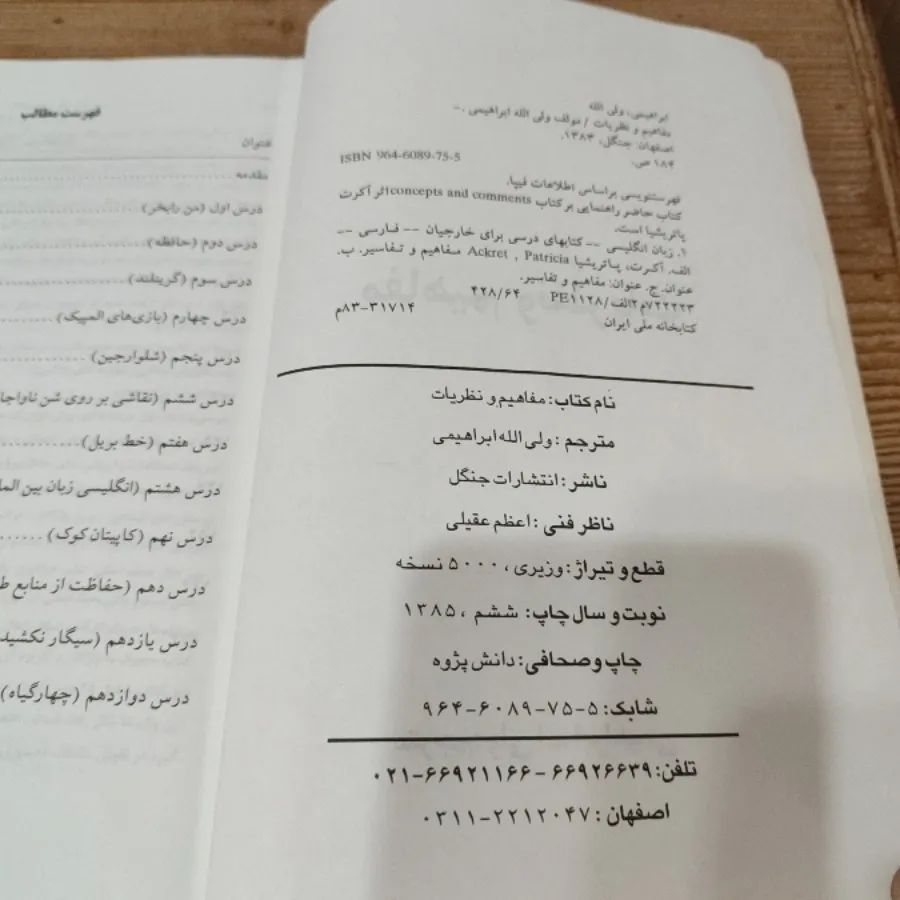 ابراهیمی، ولی الله
مفاهیم و نظریات / مولف ولی الله ابراهیمی .–
اصفهان: جنگل، ۱۳۸۳.
۱۸۴ ص.
ISBN 964-6089-75-5
فهرستنویسی براساس اطلاعات فیپا.
کتاب حاضر راهنمایی بر کتاب concepts and comments اثر آکرت
پاتریشیا است.
۱. زبان انگلیسی -- کتابهای درسی برای خارجیان -- فارسی --
الف. آکرت، پاتریشیا Ackret , Patricia مفاهیم و تفاسیر. ب.
عنوان. ج. عنوان: مفاهیم و تفاسیر.
۴۲۸/۶۴ PE۱۱۲۸/الف۲م۷۲۲۲۲۳
م۸۳-۳۱۷۱۴
کتابخانه ملی ایران
نام کتاب: مفاهیم و نظریات
مترجم : ولی الله ابراهیمی
ناشر : انتشارات جنگل
ناظر فنی : اعظم عقیلی
قطع و تیراژ : وزیری ، ۵۰۰۰ نسخه
نوبت و سال چاپ: ششم ، ۱۳۸۵
چاپ و صحافی: دانش پژوه
شابک: ۵-۷۵-۶۰۸۹-۹۶۴
تلفن: ۶۶۹۲۶۶۳۹ - ۶۶۹۲۱۱۶۶-۰۲۱
اصفهان : ۲۲۱۲۰۴۷-۰۳۱۱
فهرست مطالب
عنوان
مقدمه
درس اول (من رایخر)
درس دوم (حافظه)
درس سوم (گرینلند)
درس چهارم (بازی‌های المپیک)
درس پنجم (شلوارجین)
درس ششم (نقاشی بر روی شن
درس هفتم (خط بریل)
درس هشتم (انگلیسی زبان بین
درس نهم (کاپیتان کوک)
درس دهم (حفاظت از منابع
درس یازدهم (سیگار نکشید
درس دوازدهم (چهارگیاه)